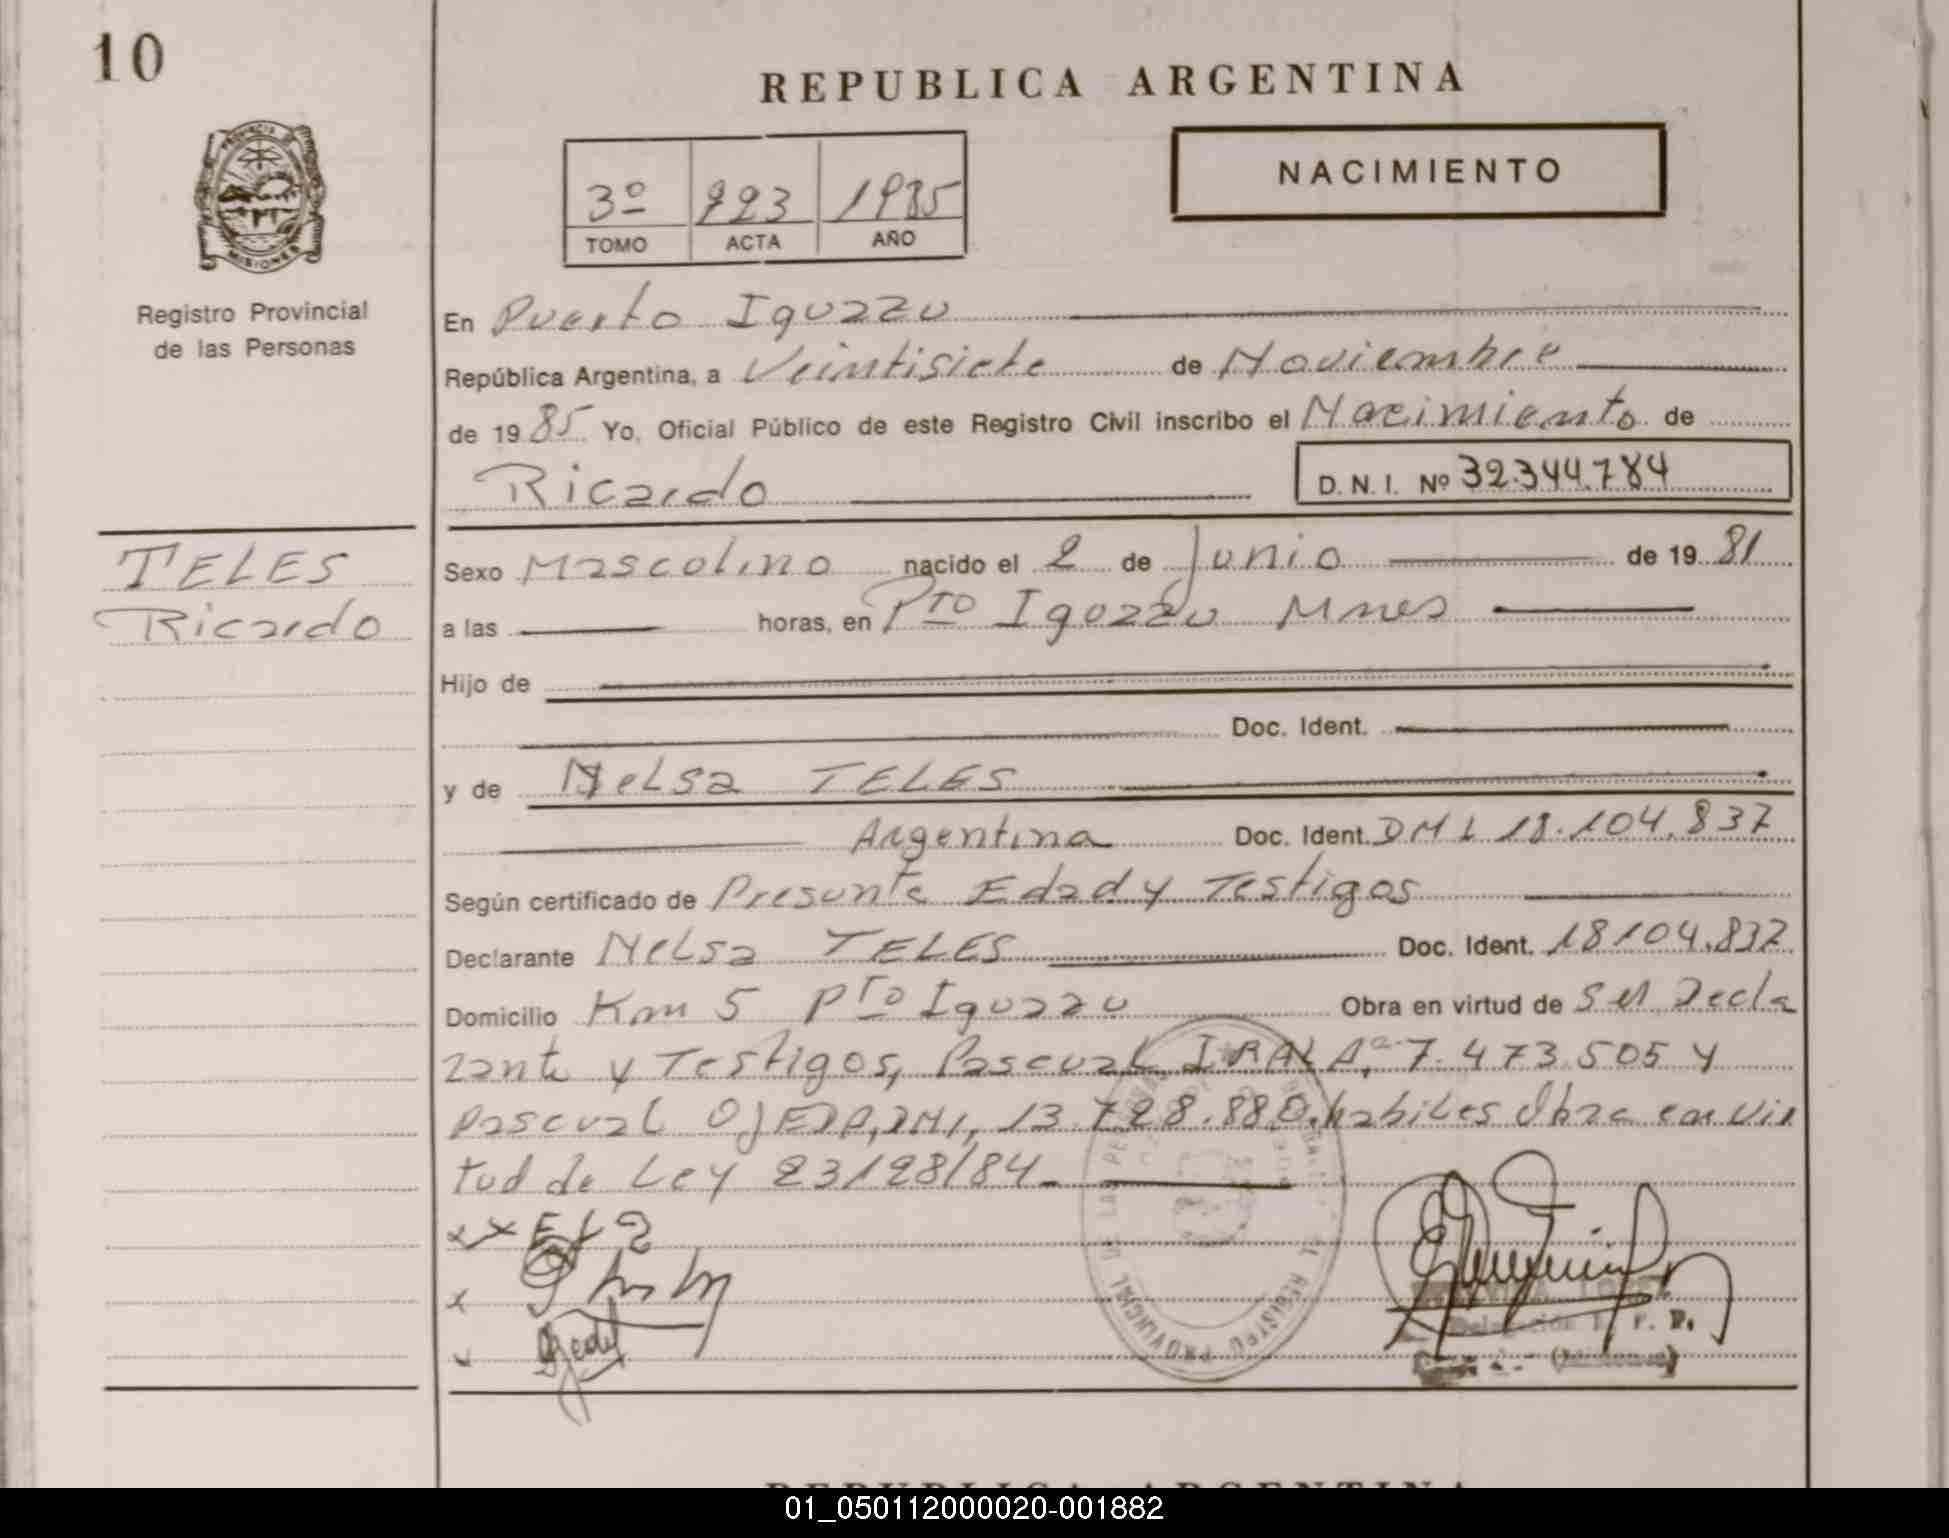 10
REPUBLICA ARGENTINA
PROVINCIA DE
MISIONES
NACIMIENTO
3º 723 1985
TOMO ACTA AÑO
Registro Provincial
de las Personas
En Puerto Iguazu
República Argentina, a Veintisiete de Noviembre
de 1985 Yo, Oficial Público de este Registro Civil inscribo el Nacimiento de
Ricardo D.N.I. Nº 32.344.784
TELES
Ricardo
Sexo Mascolino nacido el 2 de Junio de 1981
a las horas, en Pto Iguazu Mnes
Hijo de
Doc. Ident.
y de Nelsa TELES
Argentina Doc. Ident. DNI 18.104.837
Según certificado de Presunta Edad y Testigos
Declarante Nelsa TELES Doc. Ident. 18104.837
Domicilio Km 5 Pto Iguazu Obra en virtud de su Decla
rante y Testigos, Pascual IRALA, 7.473.505 y
Pascual OJEDA, DNI, 13.728.880. habiles Obra en vir
tud de Ley 23128/84.
Ojeda
Delegación R. P. P.
(Misiones)
REGISTRO PROVINCIAL DE LAS PERSONAS
REPUBLICA ARGENTINA
01_050112000020-001882